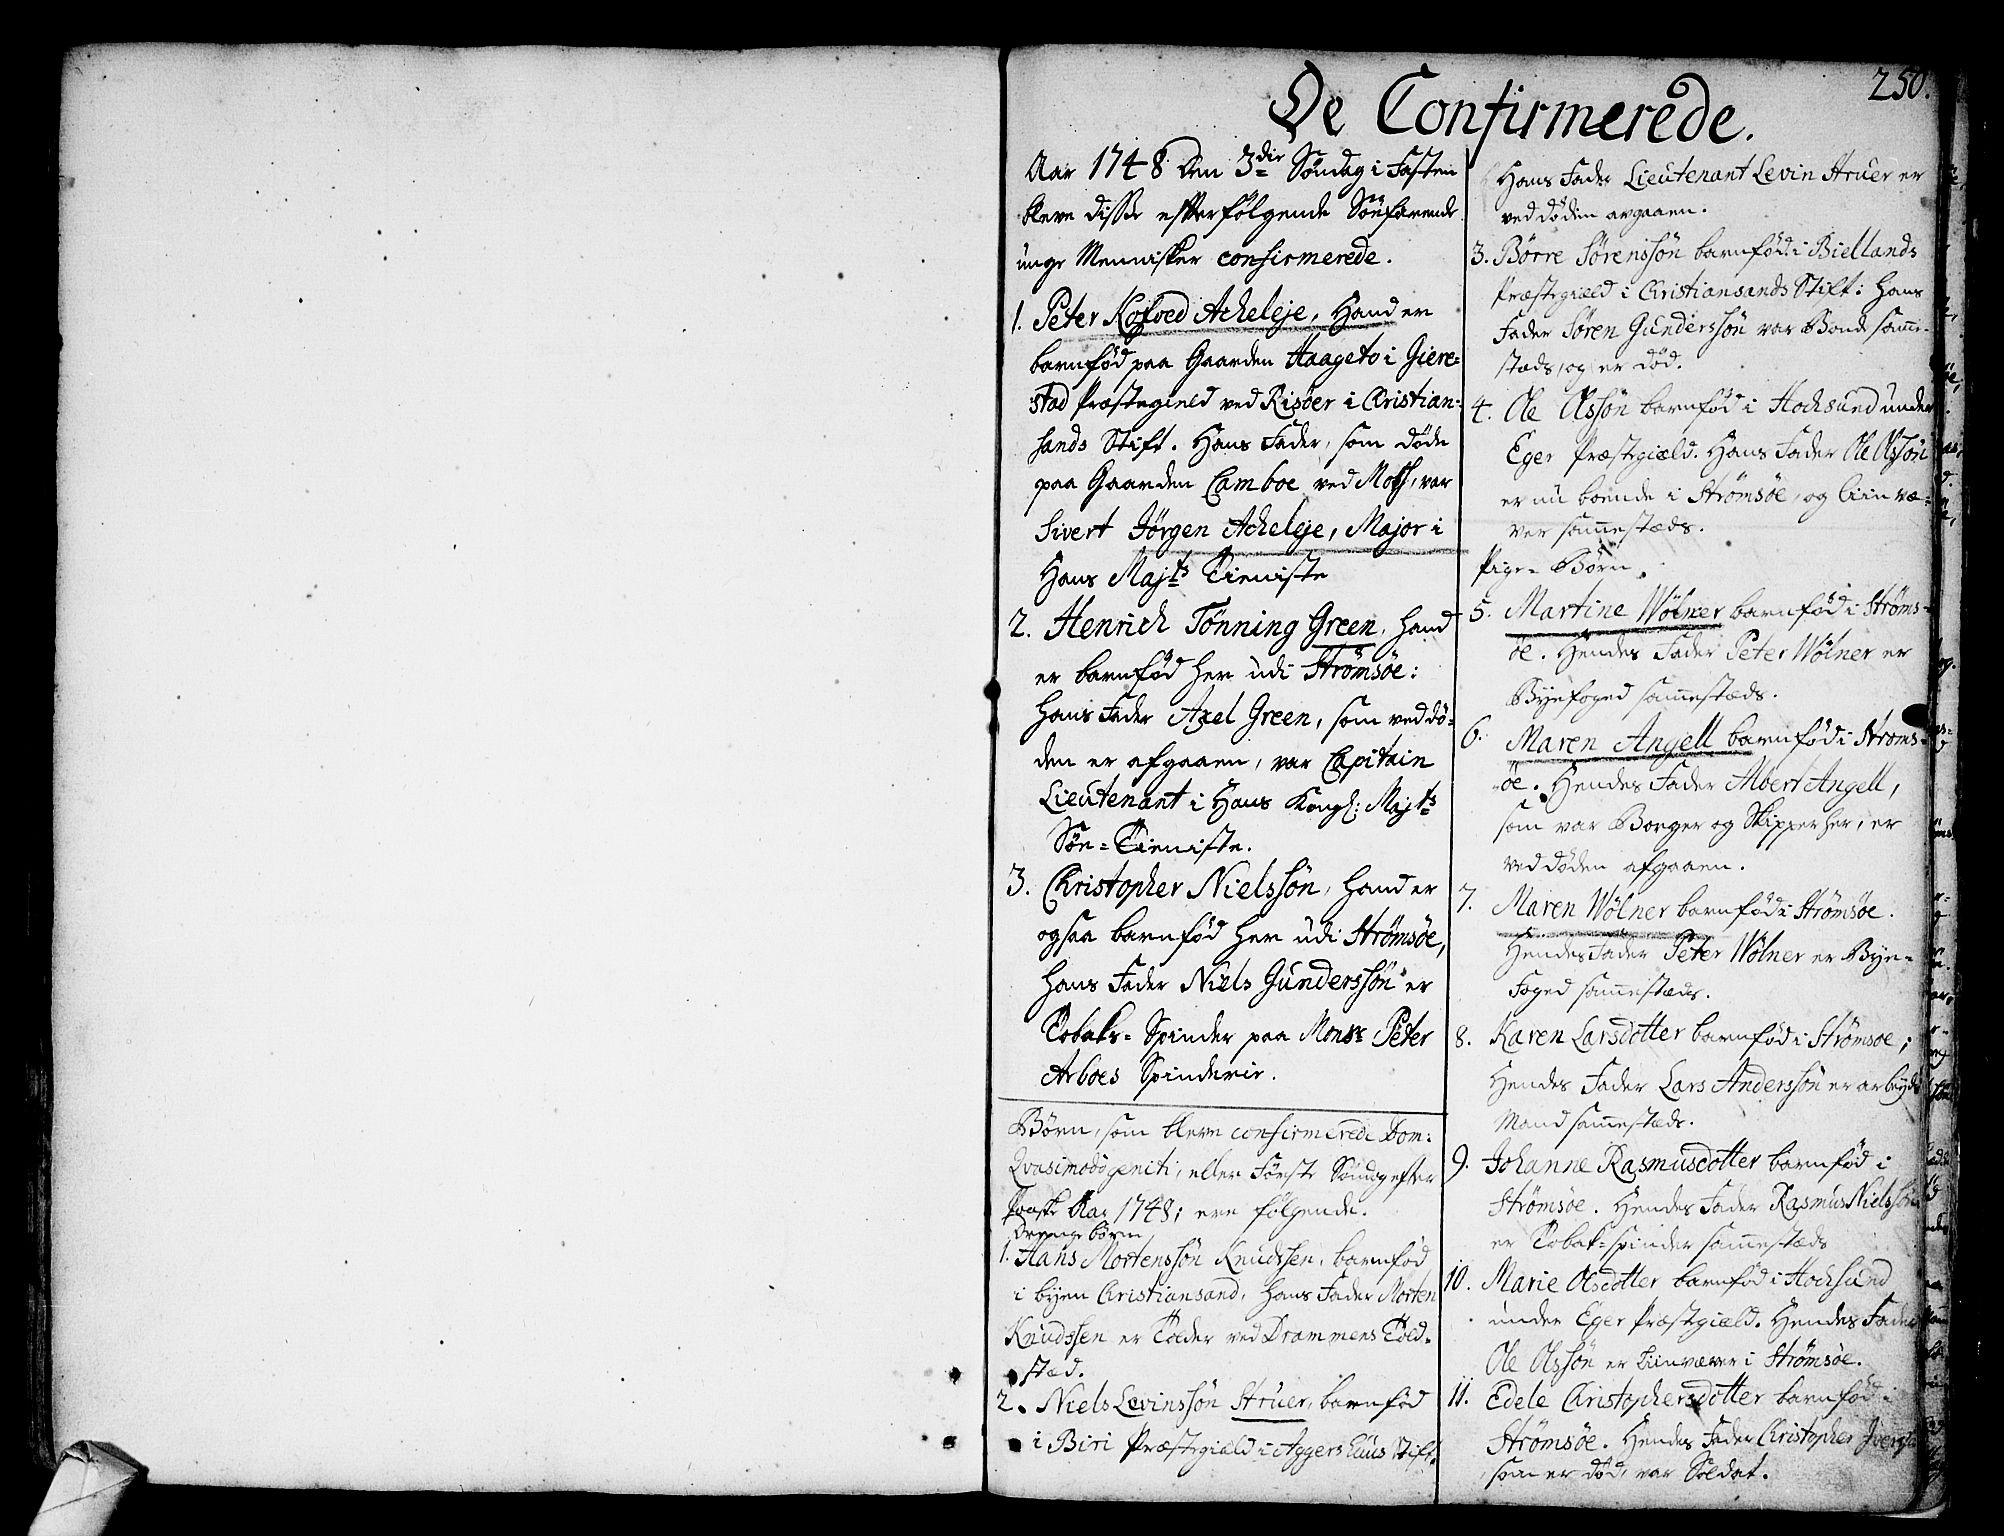 250.
De Confirmerede.
Aar 1748 den 3die Søndag i Fasten
bleve disse efterfølgende Søefarende
unge Mennisker confirmerede.
1. Peter Kofoed Acheleje, Hand er
barnfød paa Gaarden Haageto i Giere-
stad Præstegield ved Risøer i Christian-
sands Stift. Hans Fader, som døde
paa Gaarden Camboe ved Moss, var
Sivert Jörgen Acheleje, Major i
Hans Majts Tieniste
2. Henrich Tönning Green, hand
er barnfød her udi Strömsöe:
Hans Fader Axel Green, som ved dø-
den er afgaaen, var Capitain
Lieutenant i Hans Kongl: Majts
Søe-Tieniste.
3. Christopher Nielssön, hand er
ogsaa barnfød her udi Strömsöe,
Hans Fader Niels Gunderssön er
Tobaks-Spinder paa Monsr Peter
Arboes Spinderie.
Börn, som bleve confirmerede Dom:
Qvasimodogeniti, eller Første Søndag efter
Paaske Aar 1748; ere følgende.
Drenge börn
1. Hans Mortenssön Knudssen, barnfød
i byen Christiansand, Hans Fader Morten
Knudssen er Tolder ved Drammens Told-
sted.
2. Niels Levinssön Struer, barnfød
i Biri Præstegiæld i Aggershuus Stift.
Hans Fader Lieutenant Levin Struer er
ved döden avgaaen.
3. Börre Sörenssön barnfød i Biellands
Præstegiæld i Christiansands Stift: Hans
Fader Sören Gunderssön var Bonde samme-
stæds, og er død.
4. Ole Olssön barnfød i Hochsund under
Eger Præstegiæld. Hans Fader Ole Olssön
er nu boende i Strömsöe, og Liinvæ-
ver sammestæds.
Pige-Börn.
5. Martine Wölner barnfød i Ströms-
öe. Hendes Fader Peter Wölner er
Byefoged sammestæds.
6. Maren Angell barnfød i Ströms-
öe. Hendes Fader Albert Angell,
som var Borger og Skipper her, er
ved døden afgaaen.
7. Maren Wölner barnfød i Strömsöe.
Hendes Fader Peter Wölner er Bye-
Foged sammestæds.
8. Karen Larsdotter barnfød i Strömsöe;
Hendes Fader Lars Anderssön er arbeyds
Mand sammestæds.
9. Johanne Rasmusdotter barnfød i
Strömsöe. Hendes Fader Rasmus Nielssön
er Tobak-spinder sammestæds
10. Marie Olsdotter barnfød i Hochsund
under Eger Præstegiæld. Hendes Fader
Ole Olssön er Liinvæver i Strömsöe.
11. Edele Christophersdotter barnfød i
Strömsöe. Hendes Fader Christopher
som er død, var Soldat.